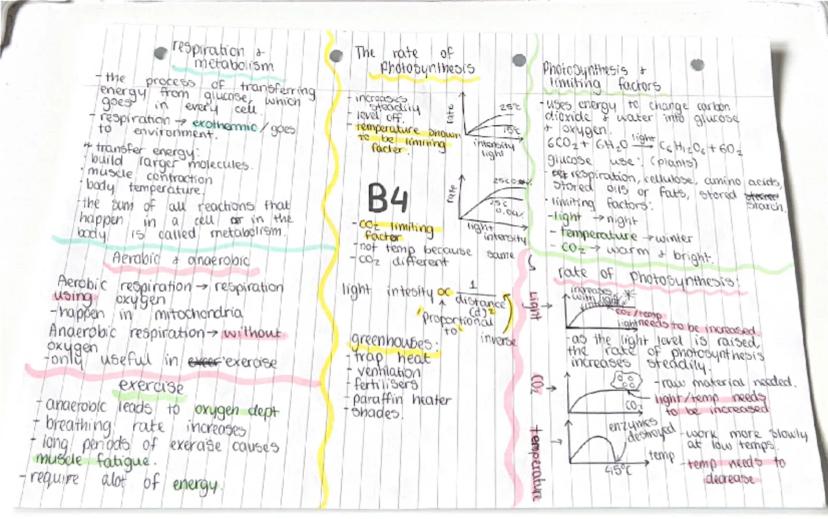 respiration &
metabolism
- the process of transferring
energy from glucose, which
goes in every cell.
- respiration → exothermic/goes
to environment.
* transfer energy:
- build larger molecules.
- muscle contraction
- body temperature.
- the sum of all reactions that
happen in a cell or in the
body is called metabolism.
Aerobic & anaerobic
Aerobic respiration → respiration
using oxygen
- happen in mitochondria
Anaerobic respiration → without
oxygen
- only useful in exercise
exercise
- anaerobic leads to oxygen dept
- breathing rate increases
- long periods of exercise causes
muscle fatigue.
- require alot of energy
The rate of
photosynthesis
- increases
steadily
- level off.
- temperature shown
to be limiting
factor.
rate
25°C
15°C
intensity
light
B4
- CO2 limiting
factor
- not temp because same
- CO2 different
rate
25°C
light
intensity
light intesity ∝ 1
distance
(d)2
"proportional
to"
inverse
greenhouses:
- trap heat
- ventilation
- fertilisers
- paraffin heater
- shades.
Photosynthesis &
limiting factors
- uses energy to change carbon
dioxide & water into glucose
& oxygen.
6CO2 + 6H2O light → C6H12O6 + 6O2
glucose use: (plants)
- respiration, cellulose, amino acids,
stored oils or fats, stored starch.
- limiting factors:
- light → night
- temperature → winter
- CO2 → warm & bright.
rate of photosynthesis:
Light →
increases
with light
CO2/temp
light needs to be increased
- as the light level is raised,
the rate of photosynthesis
increases steadily.
CO2 →
- raw material needed.
CO2
light/temp needs
to be increased
temperature →
enzymes
destroyed
temp
45°C
- work more slowly
at low temps.
- temp needs to
decrease